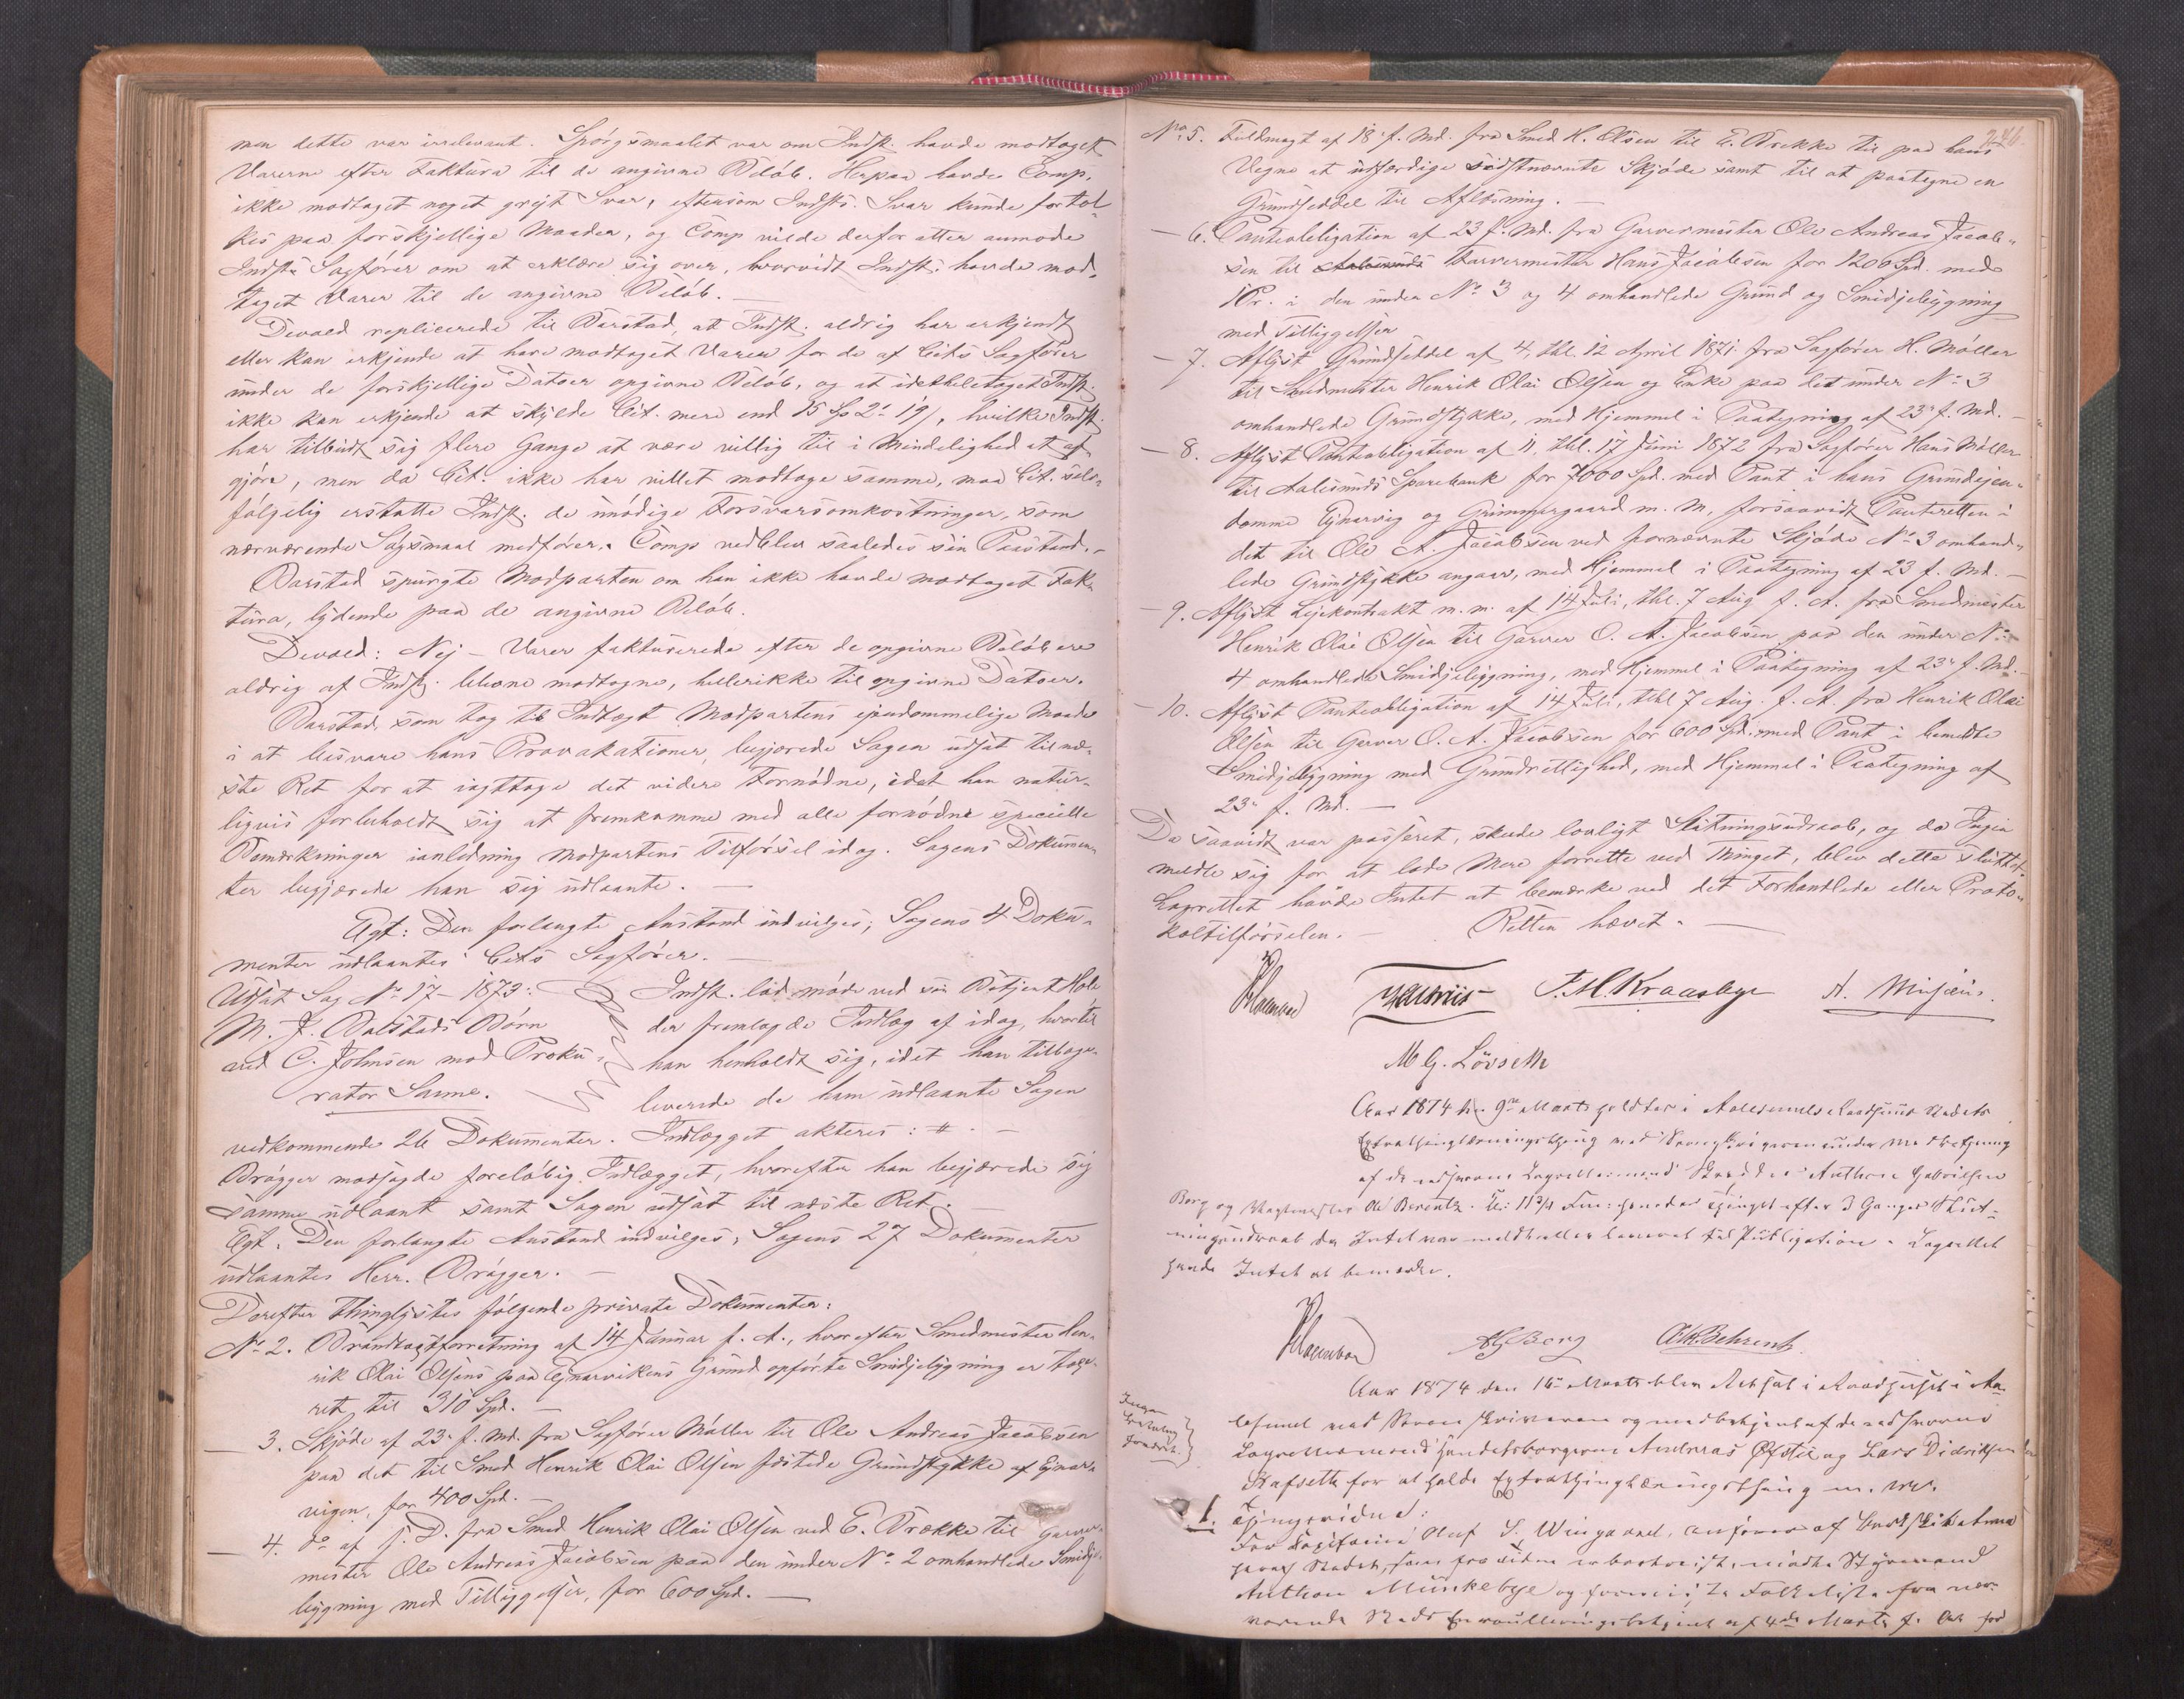 men dette var irrelevant. Spörgsmaalet var om Indst. havde modtaget
Varerne efter Faktura til de angivne Belöb. Herpaa havde Comp.
ikke modtaget noget grejt Svar, eftersom Indsts. Svar kunde fortol-
kes paa forskjellige Maader, og Comp vilde derfor atter anmode
Indsts Sagförer om at erklære sig over, hvorvidt Indst. havde mod-
taget Varer til de angivne Belöb. —
Devold replicerede til Barstad, at Indst. aldrig har erkjendt
eller kan erkjende at have modtaget Varer for de af Cits Sagförer
under de forskjellige Datoer opgivne Belöb, og at idetheletaget Indst.
ikke kan erkjende at skylde Cit. mere end 15 Sp 2 19, hvilke Indst.
har tilbudt sig flere Gange at være villig til i Mindelighed at af-
gjöre, men da Cit. ikke har villet modtage samme, maa Cit. selv-
fölgelig erstatte Indst. de unödige Forsvarsomkostninger, som
nærværende Sögsmaal medförer. Comp vedblev saaledes sin Paastand. —
Barstad spurgte Modparten om han ikke havde modtaget Fak-
tura, lydende paa de angivne Belöb.
Devold: Nej — Varer fakturerede efter de opgivne Belöb ere
aldrig af Indst. blevne modtagne, hellerikke til opgivne Datoer.
Barstad, som tog til Indtægt Modpartens ejendommelige Maade
i at besvare hans Provokationer, begjærede Sagen udsat til næ-
ste Ret for at iagttage det videre Fornödne, idet han natur-
ligvis forbeholdt sig at fremkomme med alle fornödne specielle
Bemærkninger ianledning Modpartens Tilförsel idag. Sagens Dokumen-
ter begjærede han sig udlaante. —
Egt: Den forlangte Anstand indvilges; Sagens 4 Doku-
menter udlaantes Cits Sagförer. —
Udsat Sag No 17 – 1873:
M. J. Balstads Börn
ved C. Johnsen mod Proku-
rator Sanne.
Indst. lod möde ved sin Betjent Hole
der fremlagde Indlæg af idag, hvortil
han henholdt sig, idet han tilbage-
leverede de ham udlaante Sagen
vedkommende 26 Dokumenter. Indlægget akteres: # . —
Brögger modsagde forelöbig Indlægget, hvorefter han begjærede sig
samme udlaant samt Sagen udsat til næste Ret. —
Egt. Den forlangte Anstand indvilges, Sagens 27 Dokumenter
udlaantes Herr. Brögger. —
Derefter thinglystes fölgende private Dokumenter:
No 2. Brandtaxtforretning af 14 Januar f. A., hvorefter Smedmester Hen-
rik Olai Olsens paa Ejnarvikens Grund opförte Smidjebygning er taxe-
ret til 310 Spd. —
— 3. Skjöde af 23 f. Md. fra Sagförer Möller til Ole Andreas Jacobsen
paa det til Smed Henrik Olai Olsen fæstede Grundstykke af Ejnar-
vigen, for 400 Spd. —
— 4. do af s. D. fra Smed Henrik Olai Olsen ved E. Brekke til Garver-
mester Ole Andreas Jacobsen paa den under No 2 omhandlede Smidje-
bygning med Tilliggelser, for 600 Spd. —
246.
No 5. Fuldmagt af 18 f. Md. fra Smed H. Olsen til E. Brekke til paa hans
Vegne at udfærdige sidstnævnte Skjöde samt til at paategne en
Grundseddel til Aflösning. —
— 6. Panteobligation af 23 f. Md. fra Garvermester Ole Andreas Jacob-
sen til Farvermester Hans Jacobsen for 1200 Spd. med
1 Pr. i den under No 3 og 4 omhandlede Grund og Smidjebygning
med Tilliggelser
— 7. Aflyst Grundseddel af 4, thl. 12 April 1871 fra Sagförer H. Möller
til Smedmester Henrik Olai Olsen og Enke paa det under No 3
omhandlede Grundstykke, med Hjemmel i Paategning af 23 f. Md. —
— 8. Aflyst Panteobligation af 11, thl. 17 Juni 1872 fra Sagförer Hans Möller
til Aalesunds Sparebank for 7000 Spd. med Pant i hans Grundejen-
domme Ejnarvig og Grimmergaard m. M, forsaavidt Panteretten i
det til Ole A. Jacobsen ved fornævnte Skjöde No 3 omhand-
lede Grundstykke angaar, med Hjemmel i Paategning af 23 f. Md. —
— 9. Aflyst Lejekontrakt m. m. af 14 Juli, thl. 7 Aug f. A. fra Smedmester
Henrik Olai Olsen til Garver O. A. Jacobsen paa den under No
4 omhandlede Smidjebygning, med Hjemmel i Paategning af 23 f. Md.
— 10. Aflyst Panteobligation af 14 Juli, thl 7 Aug. f. A. fra Henrik Olai
Olsen til Garver O. A. Jacobsen for 600 Spd. med Pant i bemeldte
Smidjebygning med Grundrettighed, med Hjemmel i Paategning af
23 f. Md. —
Da saavidt var passeret, skede lovligt Slutningsudraab, og da Ingen
meldte sig for at lade Mere forrette ved Thinget, blev dette sluttet.
Lagrettet havde Intet at bemærke ved det Forhandlede eller Proto-
koltilförselen. — Retten hævet. —
J. M. Kraasbye
M G. Lövseth
Aar 1874 den 9de Marts holdtes i Aalesunds Raadhuus Stedets
Extrathinglæsningsthing ved Sorenskriveren under Medbetjening
af de edsvorne Lagrettesmænd Anthon Gabrielsen
Borg og Vagtmester Ole Berentz. Kl: 11 3/4 Thinget efter 3 Ganges Slut-
ningsudraab da Intet var meldt eller leveret til Publication. Lagrettet
havde Intet at bemærke.
AG Borg
O. A. Behrentz
Aar 1874 den 16de Marts blev Ret sat i Raadhuset i Aa-
lesund ved Sorenskriveren og medbetjent af de edsvorne
Lagrettesmænd Handelsborgerne Andreas Øfsti og Lars Didriksen
Rafseth for at holde Extrathinglæsningsthing m. m.
Ingen
1. Thingsvidne:
For Capitaine Oluf S. Wingaard, Förer af
Stedet, mödte Styrmand
Anthon Munkebye og Folkeliste fra nær-
værende Steds Enrouleringsbetjent af 4de Marts f. A.